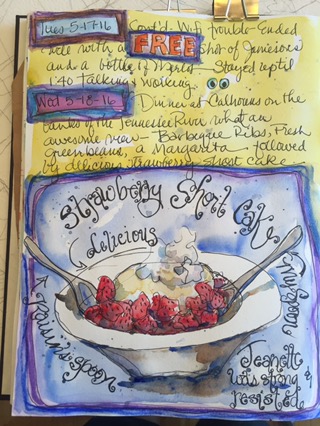 Tues 5-17-16 Cont'd. Wifi trouble - Ended
here with a FREE shot of Jamisons
and a bottle of Merlot - Stayed up til
1:40 talking & walking.
Wed 5-18-16 Dinner at Calhouns on the
banks of the Tennessee River what an
awesome view - Barbeque Ribs, Fresh
Green beans, a Margarita followed
by delicious strawberry short cake
Strawberry Short Cake
Delicious
Traism's spoon
My spoon
Jeanette
was strong &
resisted